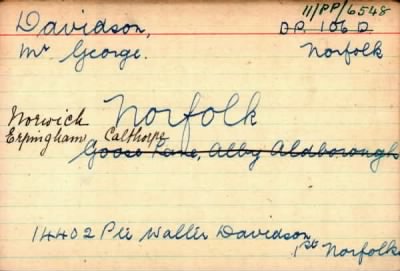 11/PP/6548
Davidson, DP. 106 D
Mr George. Norfolk
Norwich Norfolk
Erpingham Calthorpe
Goose Lane, Alby Aldborough
14402 Pte Walter Davidson
1st Norfolks